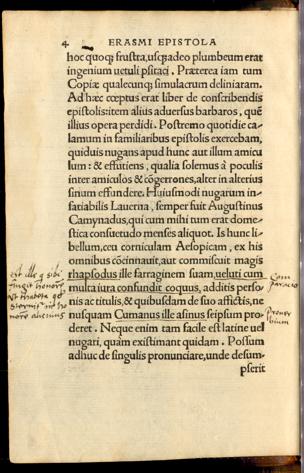 4 ERASMI EPISTOLA
hoc quoq; frustra, usq;adeo plumbeum erat
ingenium uetuli psitaci. Præterea iam tum
Copiæ qualecunq; simulacrum deliniaram.
Ad hæc cœptus erat liber de conscribendis
epistolis:item alius aduersus barbaros, quē
illius opera perdidi. Postremo quotidie ca-
lamum in familiaribus epistolis exercebam,
quiduis nugans apud hunc aut illum amicu
lum: & effutiens, qualia solemus ī poculis
inter amiculos & cōgerrones, alter in alterius
sinum effundere. Huiusmodi nugarum in-
satiabilis Lauerna, semper fuit Augustinus
Camynadus, qui cum mihi tum erat dome-
stica consuetudo menses aliquot. Is hunc li-
bellum, ceu corniculam Aesopicam, ex his
omnibus cōcinnauit, aut commiscuit magis
rhapsodus ille farraginem suam, ueluti cum
multa iura confundit coquus, additis perso-
nis ac titulis, & quibusdam de suo affictis, ne
nusquam Cumanus ille asinus seipsum pro-
deret. Neque enim tam facile est latine uel
nugari, quàm existimant quidam. Possum
adhuc de singulis pronunciare, unde desum-
pserit
est ille q sibi
fingit honorē